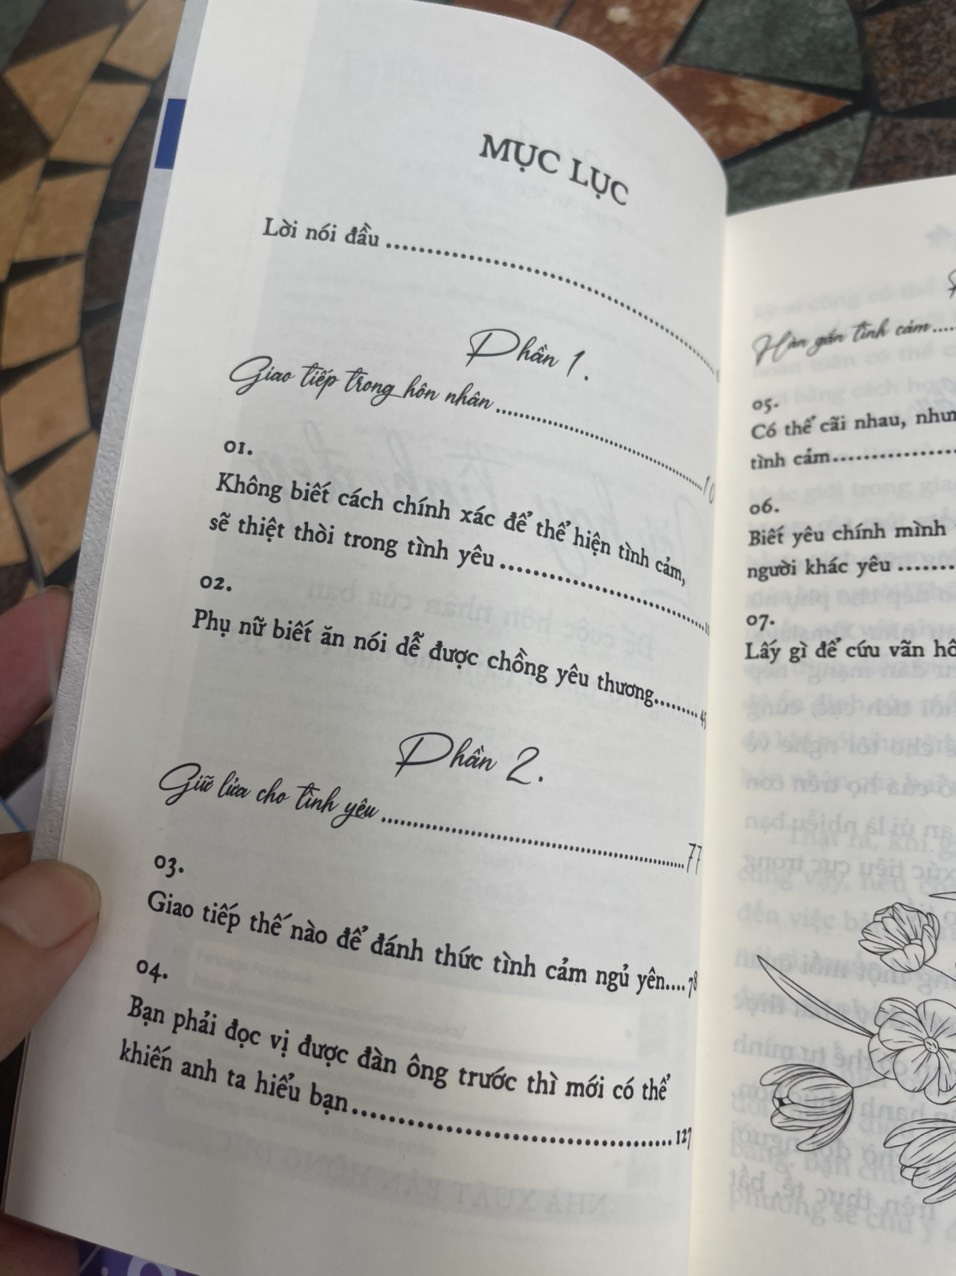 MỤC LỤC
Lời nói đầu
Phần 1.
Giao tiếp trong hôn nhân 10
01.
Không biết cách chính xác để thể hiện tình cảm,
sẽ thiệt thòi trong tình yêu
02.
Phụ nữ biết ăn nói dễ được chồng yêu thương
Phần 2.
Giữ lửa cho tình yêu 77
03.
Giao tiếp thế nào để đánh thức tình cảm ngủ yên....78
04.
Bạn phải đọc vị được đàn ông trước thì mới có thể
khiến anh ta hiểu bạn 127
Hàn gắn tình cảm
05.
Có thể cãi nhau, nhưn
tình cảm
06.
Biết yêu chính mình
người khác yêu
07.
Lấy gì để cứu vãn hô